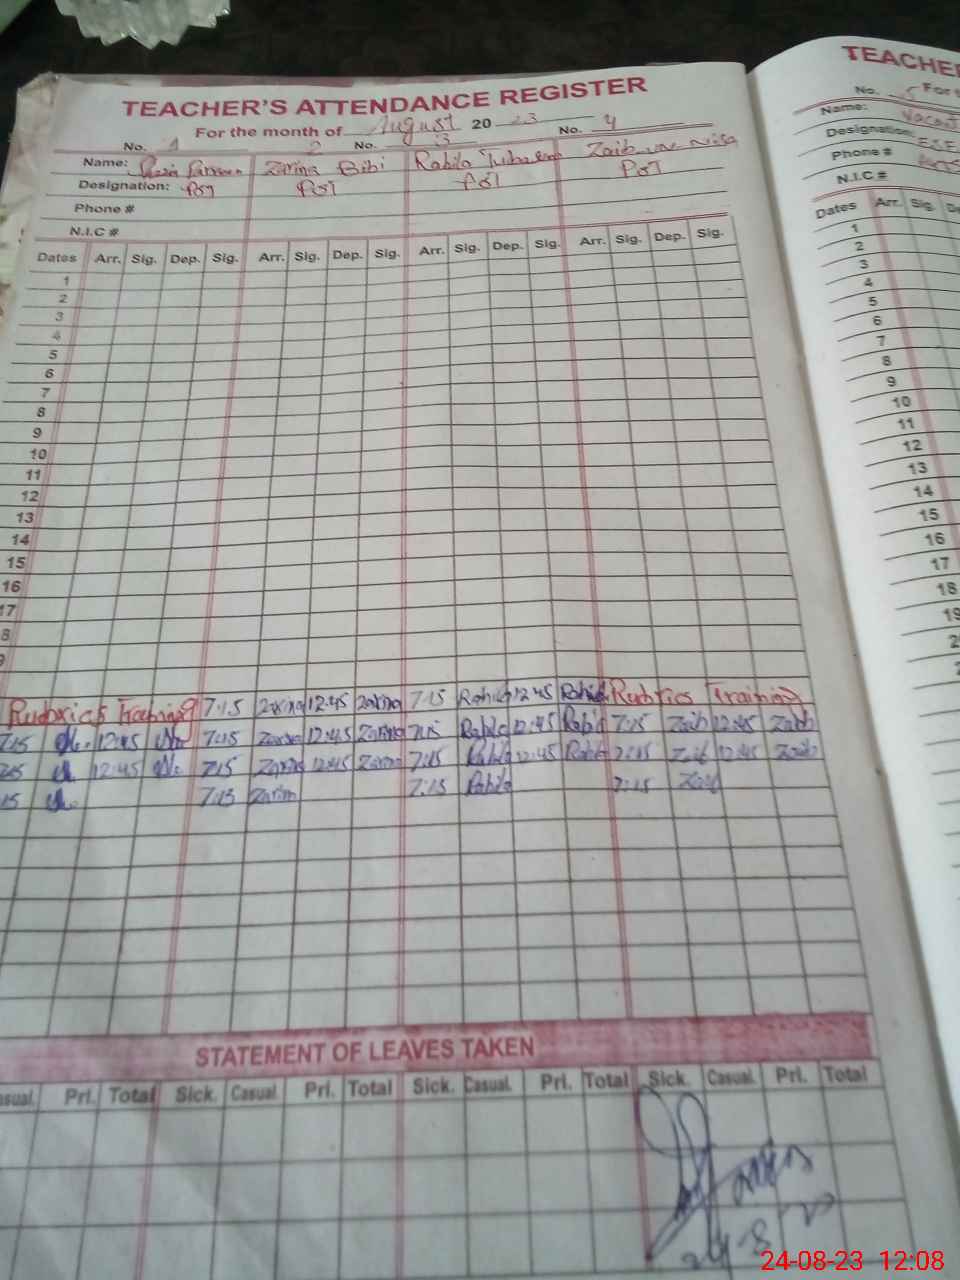 TEACHER'S ATTENDANCE REGISTER
For the month of August 20 23
No. 1 2 No. 3 No. 4
Name: Parveen Zarina Bibi Rabila Zaib un nisa
Designation: PST PST PST PST
Phone #
N.I.C #
Dates Arr. Sig. Dep. Sig. Arr. Sig. Dep. Sig. Arr. Sig. Dep. Sig. Arr. Sig. Dep. Sig.
1
2
3
4
5
6
7
8
9
10
11
12
13
14
15
16
17
8
9
Rubrics Training 7:15 Zarina 12:45 Zarina 7:15 Rabila 12:45 Rabila Rubrics Training
7:15 12:45 7:15 Zarina 12:45 Zarina 7:15 Rabila 12:45 Rabil 7:15 Zaib 12:45 Zaib
7:15 12:45 7:15 Zarina 12:45 Zarina 7:15 Rabila 12:45 Rabila 7:15 Zaib 12:45 Zaib
15 7:15 Zarina 7:15 Rabila 7:15 Zaib
STATEMENT OF LEAVES TAKEN
asual. Pri. Total Sick. Casual. Pri. Total Sick. Casual. Pri. Total Sick. Casual. Pri. Total
24-8-23
24-08-23 12:08
TEACHER
No. 5 For t
Name: Vacant
Designation: ESE
Phone #
N.I.C #
Dates Arr. Sig. De
1
2
3
4
5
6
7
8
9
10
11
12
13
14
15
16
17
18
19
2